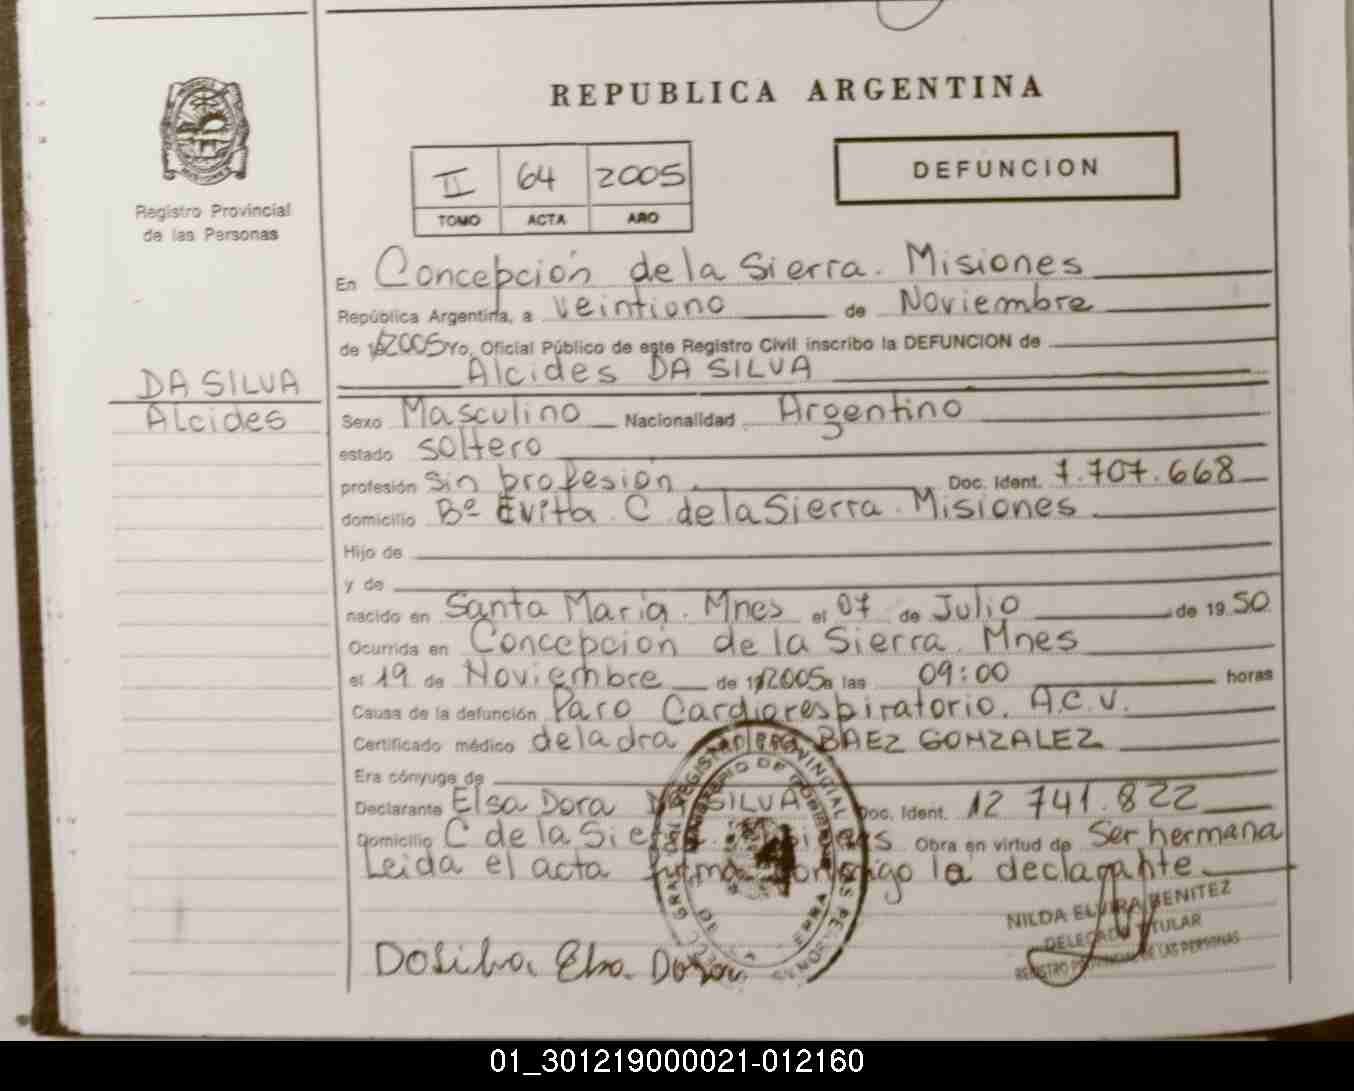 REPUBLICA ARGENTINA
Registro Provincial
de las Personas
II 64 2005
TOMO ACTA AÑO
DEFUNCION
En Concepción de la Sierra. Misiones
República Argentina, a veintiuno de Noviembre
de 2005 Yo, Oficial Público de este Registro Civil inscribo la DEFUNCION de
Alcides DA SILVA
DA SILVA
Alcides
Sexo Masculino Nacionalidad Argentino
estado soltero
profesión sin profesión. Doc. Ident. 7.707.668
domicilio Bº Evita. C de la Sierra. Misiones
Hijo de
y de
nacido en Santa María. Mnes el 07 de Julio de 19 50
Ocurrida en Concepción de la Sierra. Mnes
el 19 de Noviembre de 2005 a las 09:00 horas
Causa de la defunción Paro Cardiorespiratorio. A.C.V.
Certificado médico de la dra BAEZ GONZALEZ
Era cónyuge de
Declarante Elsa Dora DA SILVA Doc. Ident. 12 741.822
Domicilio C de la Sierra Obra en virtud de Ser hermana
Leida el acta firma conmigo la declarante
Dasilva Elsa Dora
NILDA ELVIRA BENITEZ
DELEGADA TITULAR
REGISTRO PROVINCIAL DE LAS PERSONAS
01_301219000021-012160